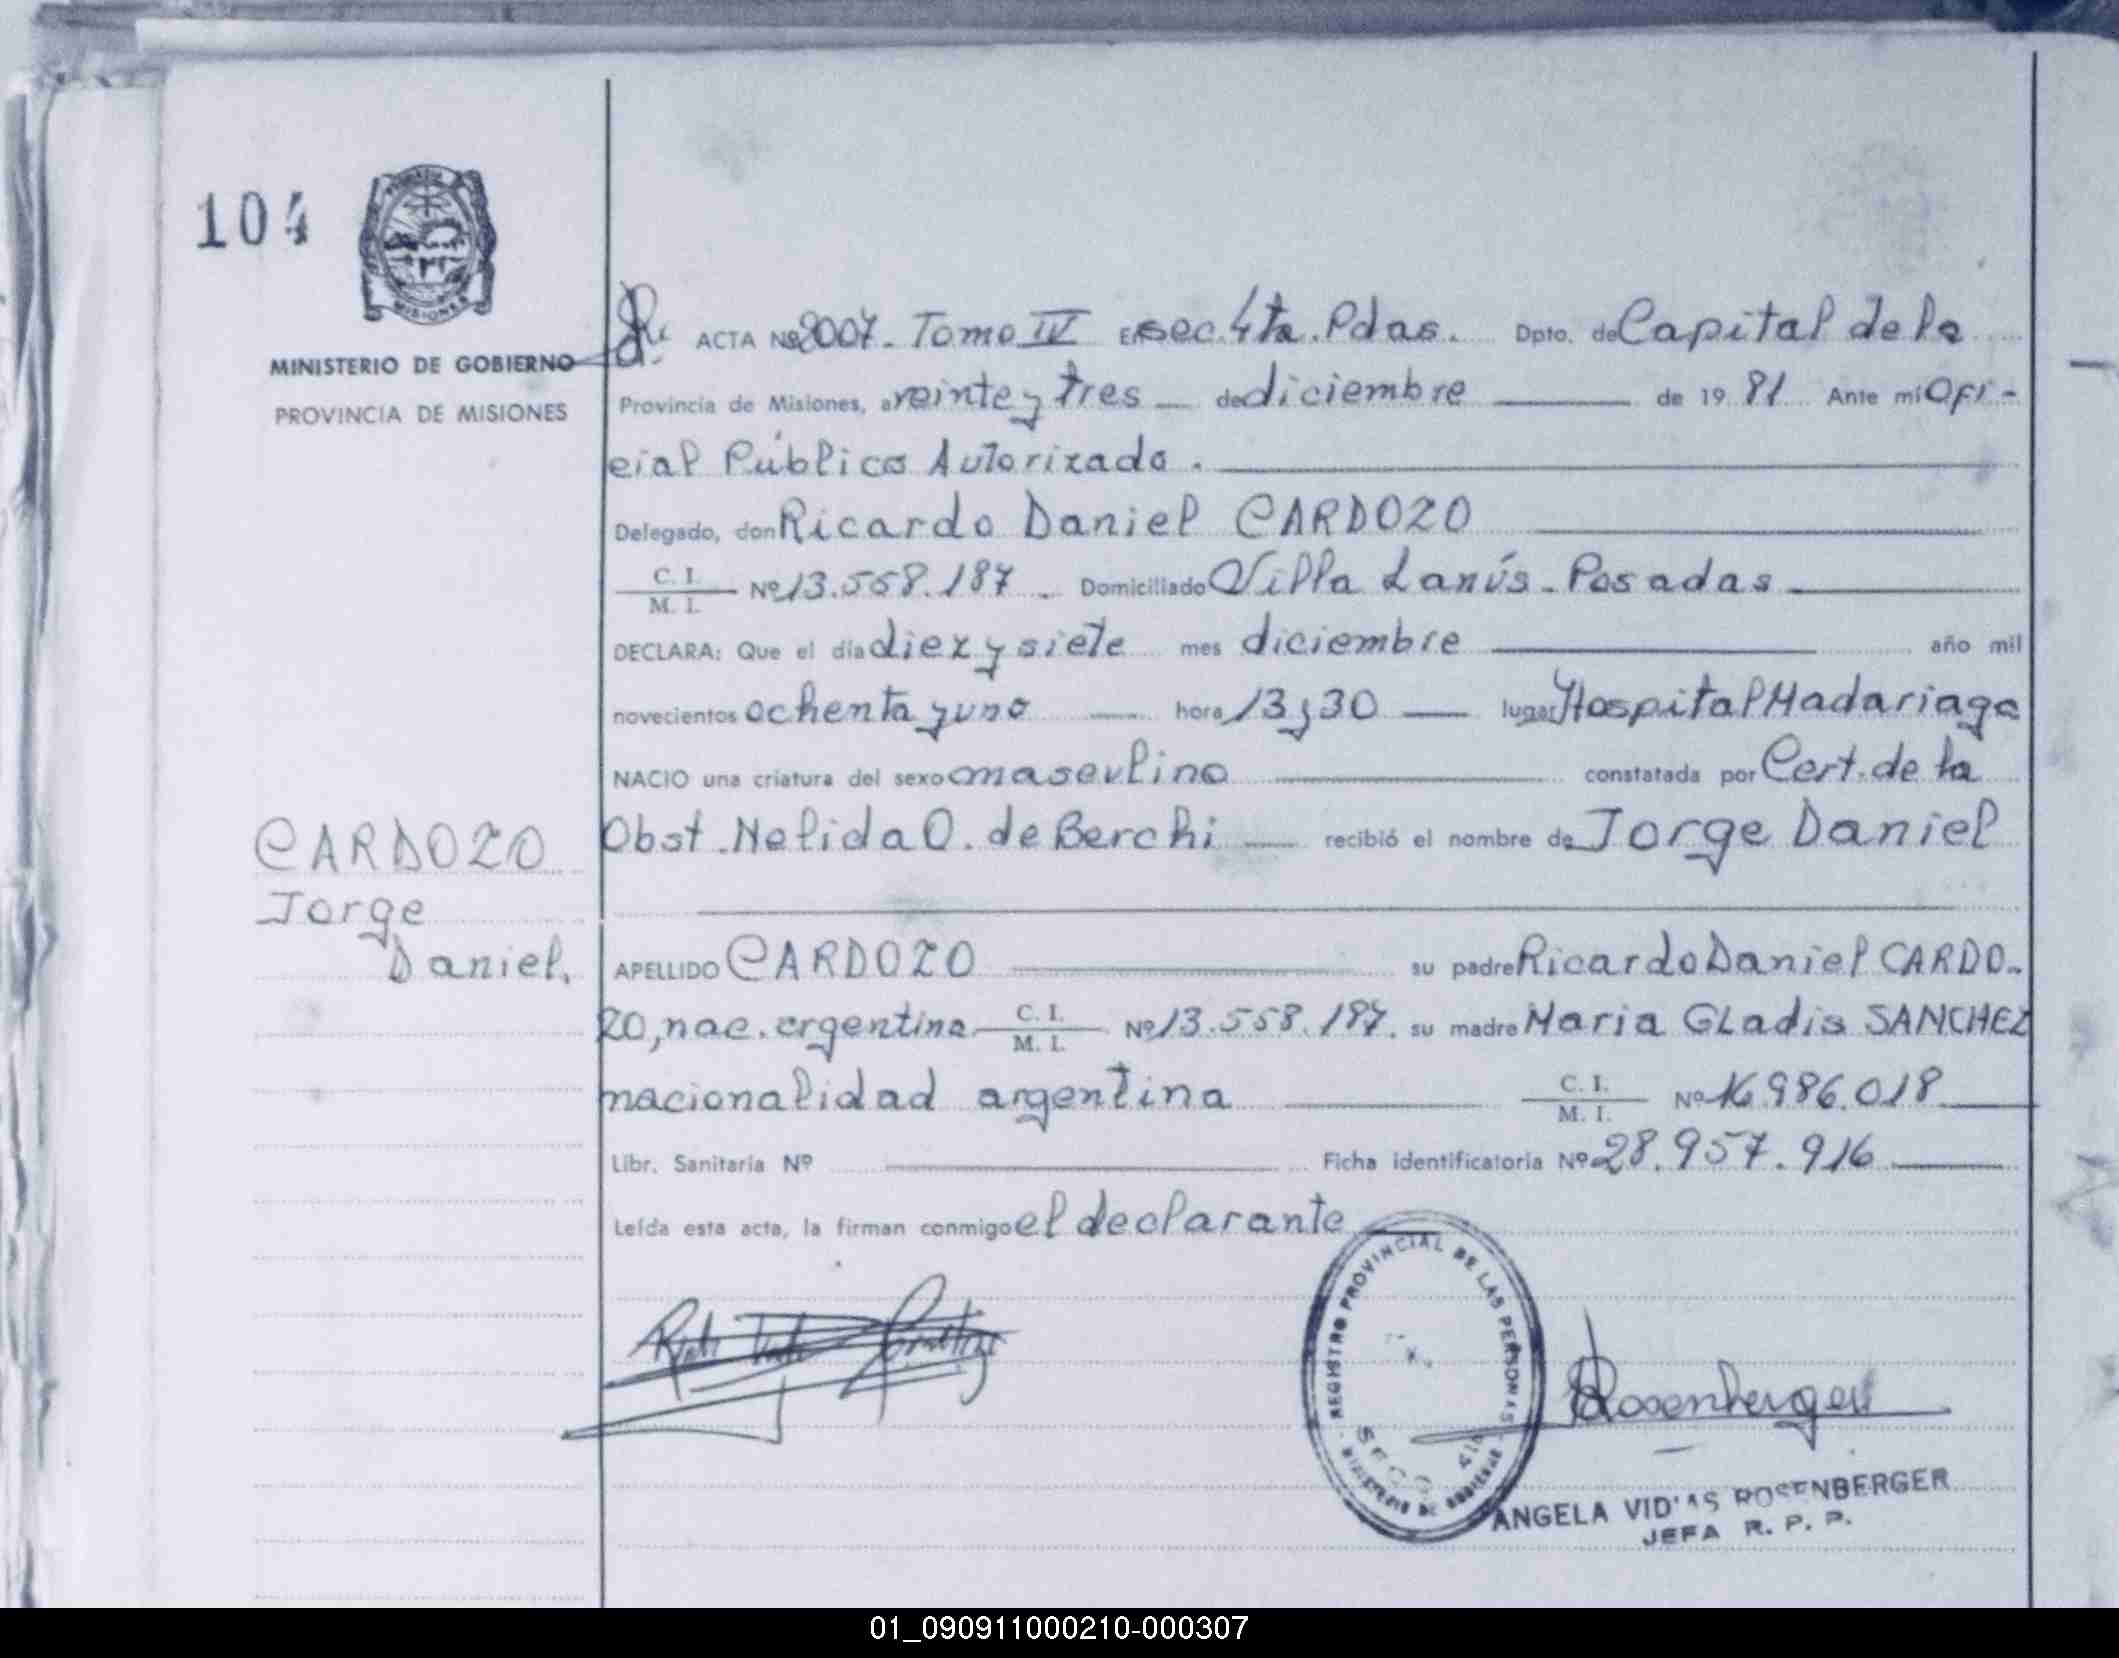 104
MISIONES
MINISTERIO DE GOBIERNO
PROVINCIA DE MISIONES
ACTA Nº 2007. Tomo IV En sec. 4ta. Pdas. Dpto. de Capital de la
Provincia de Misiones, a veinte y tres de diciembre de 19 81 Ante mí Ofi-
cial Público Autorizado.
Delegado, don Ricardo Daniel CARDOZO
C. I.
M. I. Nº 13.558.187 Domiciliado Villa Lanús - Posadas
DECLARA: Que el día diez y siete mes diciembre año mil
novecientos ochenta y uno hora 13 y 30 lugar Hospital Madariaga
NACIO una criatura del sexo masculino constatada por Cert. de la
Obst. Nelida O. de Berchi recibió el nombre de Jorge Daniel
CARDOZO
Jorge
Daniel.
APELLIDO CARDOZO su padre Ricardo Daniel CARDO-
ZO, nac. argentina C. I.
M. I. Nº 13.558.187. su madre Maria Gladis SANCHEZ
nacionalidad argentina C. I.
M. I. Nº 16.986.018
Libr. Sanitaria Nº Ficha identificatoria Nº 28.957.916
Leída esta acta, la firman conmigo el declarante
REGISTRO PROVINCIAL DE LAS PERSONAS
MINISTERIO DE GOBIERNO
SECC 4ta
Rosenberger
ANGELA ROSENBERGER
JEFA R. P. P.
01_090911000210-000307